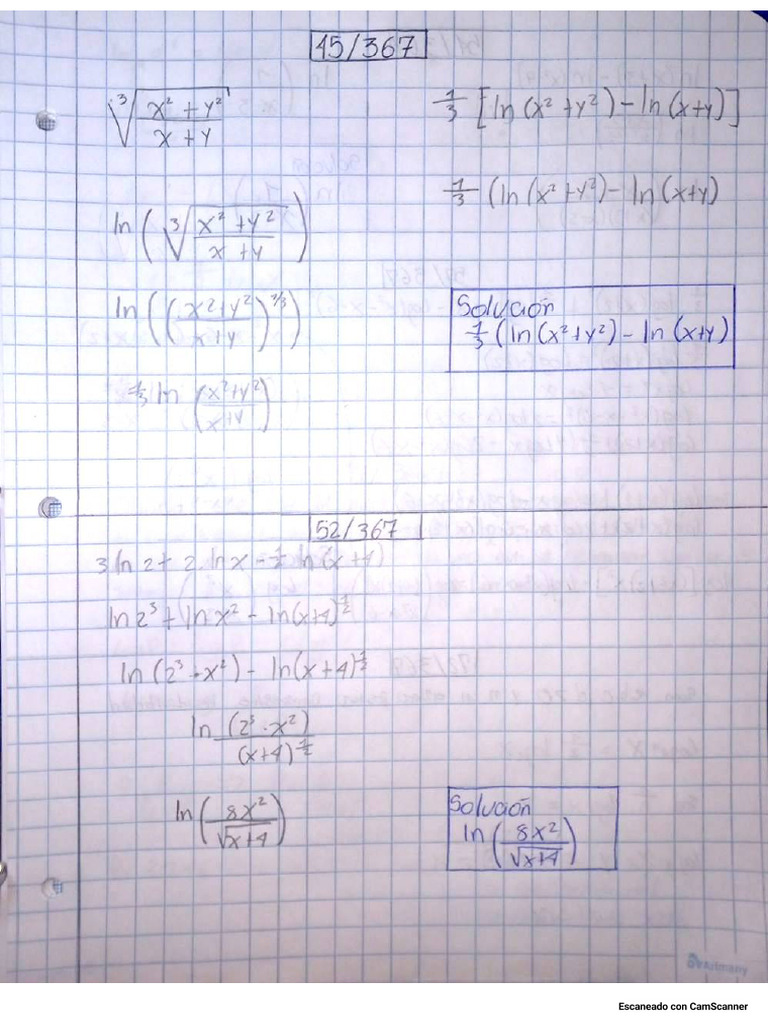 45/367
∛((x² + y²)/(x + y))
ln (∛((x² + y²)/(x + y)))
ln (((x² + y²)/(x + y))^(1/3))
1/3 ln ((x² + y²)/(x + y))
1/3 [ln (x² + y²) - ln (x + y)]
1/3 (ln (x² + y²) - ln (x + y)
Solución
1/3 (ln (x² + y²) - ln (x + y)
52/367
3 ln 2 + 2 ln x - 1/2 ln (x + 4)
ln 2³ + ln x² - ln (x + 4)^(1/2)
ln (2³ · x²) - ln (x + 4)^(1/2)
ln (2³ · x²)/(x + 4)^(1/2)
ln (8x²/√(x + 4))
Solución
ln (8x²/√(x + 4))
Escaneado con CamScanner